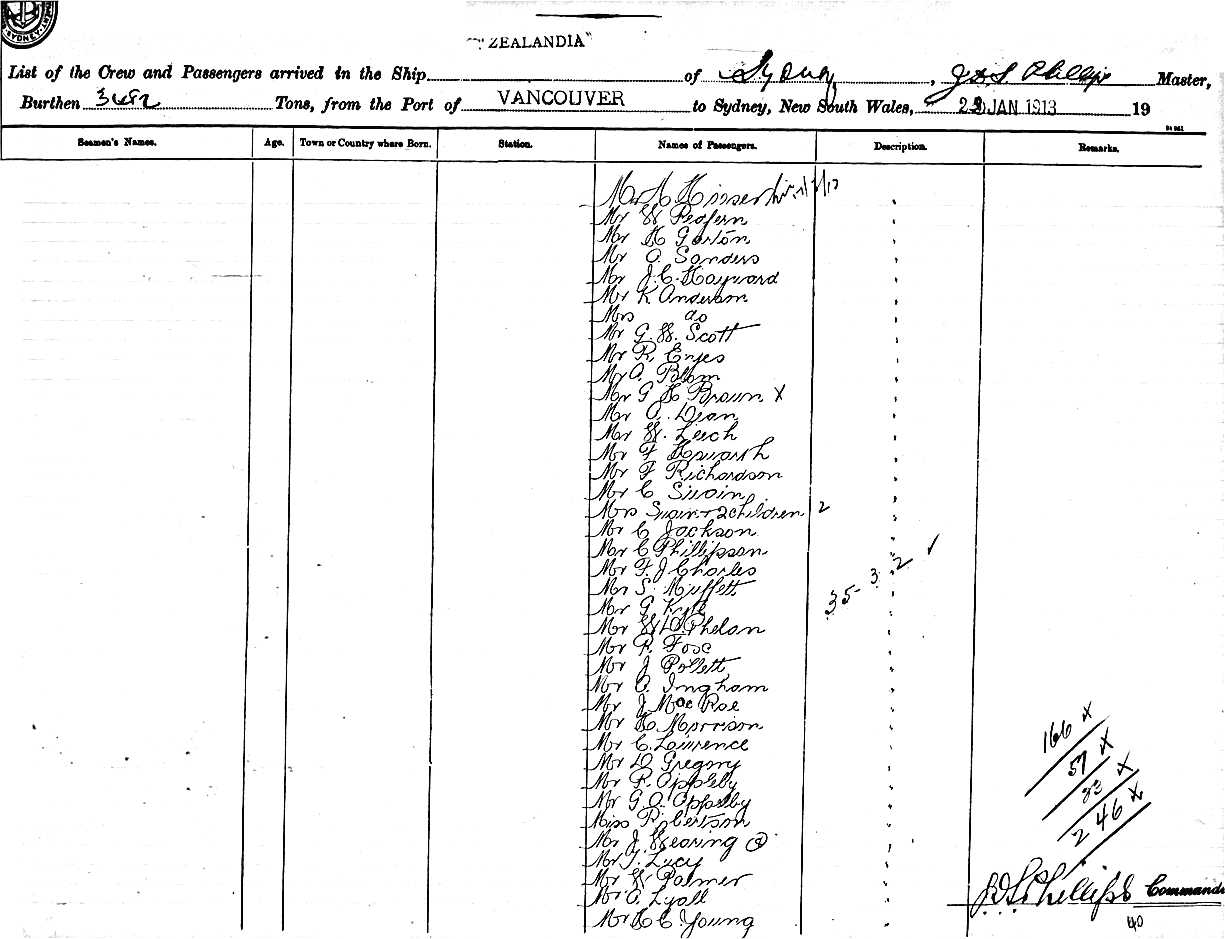 SYDNEY
"ZEALANDIA"
List of the Crew and Passengers arrived in the Ship of Sydney, J D S Phillips Master,
Burthen 3482 Tons, from the Port of VANCOUVER to Sydney, New South Wales, JAN 1913 19
Seamen's Names. Age. Town or Country where Born. Station. Names of Passengers. Description. Remarks.
Mr A
Mr W Redfern
Mr H Gorton
Mr A Sanders
Mr J. C. Hayward
Mr K Anderson
Mrs do
Mr G W. Scott
Mr R.
Mr A. Blom
Mr G H Brown X
Mr A. Dean
Mr W. Leech
Mr F Howarth
Mr F Richardson
Mr C Swain
Mrs Swain + 2 children 2
Mr C Jackson
Mr C Phillipson
Mr F. J Charles
Mr S. Muffett
Mr G Kyle
35 - 3 2 ✓
Mr W D. Phelan
Mr R. Fox
Mr J Pollett
Mr A. Ingham
Mr J. MacRae
Mr H. Morrison
Mr C. Lawrence
Mr D Gregory
Mr R. Appleby
Mr G. A. Appleby
Miss Robertson
Mr J. Wearing
Mr T. Lucy
Mr W Palmer
Mr A. Lyall
Mr H C Young
166 x
57 x
23 x
246 x
J D S Phillips Commande
40